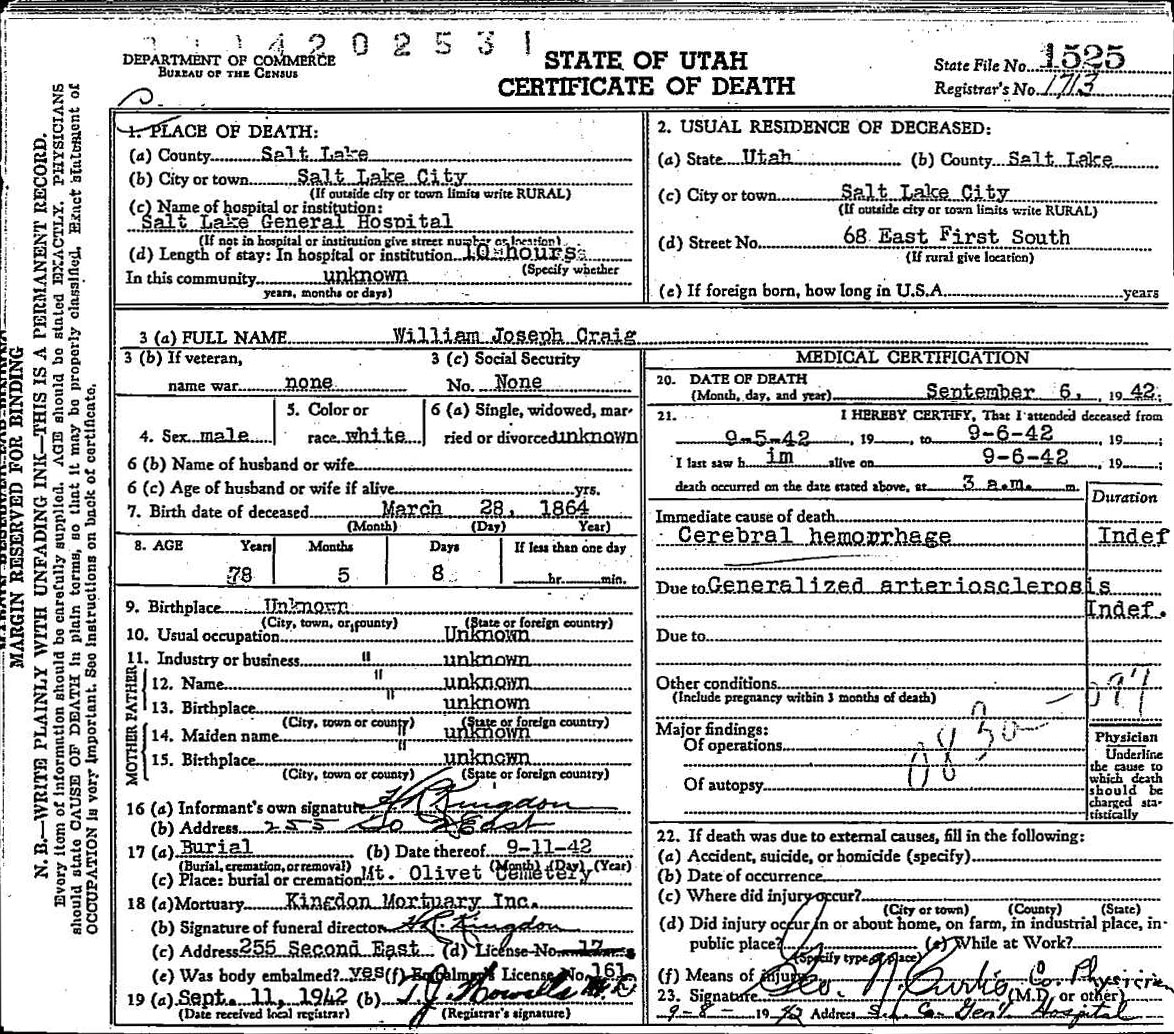 4 2 0 2 5 3 1
DEPARTMENT OF COMMERCE
BUREAU OF THE CENSUS
STATE OF UTAH
CERTIFICATE OF DEATH
State File No. 1525
Registrar's No. 1713
MARGIN RESERVED FOR BINDING
N. B.—WRITE PLAINLY WITH UNFADING INK—THIS IS A PERMANENT RECORD.
Every item of information should be carefully supplied. AGE should be stated EXACTLY. PHYSICIANS
should state CAUSE OF DEATH in plain terms, so that it may be properly classified. Exact statement of
OCCUPATION is very important. See instructions on back of certificate.
1. PLACE OF DEATH:
(a) County Salt Lake
(b) City or town Salt Lake City
(If outside city or town limits write RURAL)
(c) Name of hospital or institution:
Salt Lake General Hospital
(If not in hospital or institution give street number or location)
(d) Length of stay: In hospital or institution 10 hours
(Specify whether
In this community unknown
years, months or days)
2. USUAL RESIDENCE OF DECEASED:
(a) State Utah (b) County Salt Lake
(c) City or town Salt Lake City
(If outside city or town limits write RURAL)
(d) Street No. 68 East First South
(If rural give location)
(e) If foreign born, how long in U.S.A. years
3 (a) FULL NAME William Joseph Craig
3 (b) If veteran, 3 (c) Social Security
name war none No. None
5. Color or 6 (a) Single, widowed, mar-
4. Sex male race white ried or divorced unknown
6 (b) Name of husband or wife
6 (c) Age of husband or wife if alive yrs.
7. Birth date of deceased March 28, 1864
(Month) (Day) Year)
8. AGE Years Months Days If less than one day
78 5 8 hr. min.
9. Birthplace Unknown
(City, town, or county) (State or foreign country)
10. Usual occupation Unknown
11. Industry or business " unknown
FATHER
12. Name " unknown
13. Birthplace " unknown
(City, town or county) (State or foreign country)
MOTHER
14. Maiden name " unknown
15. Birthplace unknown
(City, town or county) (State or foreign country)
16 (a) Informant's own signature H R Kingdon
(b) Address 255 So 2 East
17 (a) Burial (b) Date thereof 9-11-42
(Burial, cremation, or removal) (Month) (Day) (Year)
(c) Place: burial or cremation Mt. Olivet Cemetery
18 (a) Mortuary Kingdon Mortuary Inc.
(b) Signature of funeral director H R Kingdon
(c) Address 255 Second East (d) License No. 17
(e) Was body embalmed? yes (f) Embalmers License No. 161
19 (a) Sept. 11, 1942 (b) T. J. Howells M.D
(Date received local registrar) (Registrar's signature)
MEDICAL CERTIFICATION
20. DATE OF DEATH
(Month, day, and year) September 6, 1942
21. I HEREBY CERTIFY, That I attended deceased from
9-5-42, 19 to 9-6-42, 19 ;
I last saw h im alive on 9-6-42, 19 ;
death occurred on the date stated above, at 3 a.m. m.
Duration
Immediate cause of death
Cerebral hemorrhage Indef
Due to Generalized arteriosclerosis
Indef.
Due to
Other conditions
(Include pregnancy within 3 months of death)
Major findings:
Of operations
Of autopsy
0830 — 097
Physician
Underline
the cause to
which death
should be
charged sta-
tistically
22. If death was due to external causes, fill in the following:
(a) Accident, suicide, or homicide (specify)
(b) Date of occurrence
(c) Where did injury occur?
(City or town) (County) (State)
(d) Did injury occur in or about home, on farm, in industrial place, in
public place? (e) While at Work?
(Specify type of place)
(f) Means of injury
23. Signature Geo. N. Curtis Co. Physician
(M.D. or other)
9-8- 1942 Address S.L. Co. Gen'l Hospital